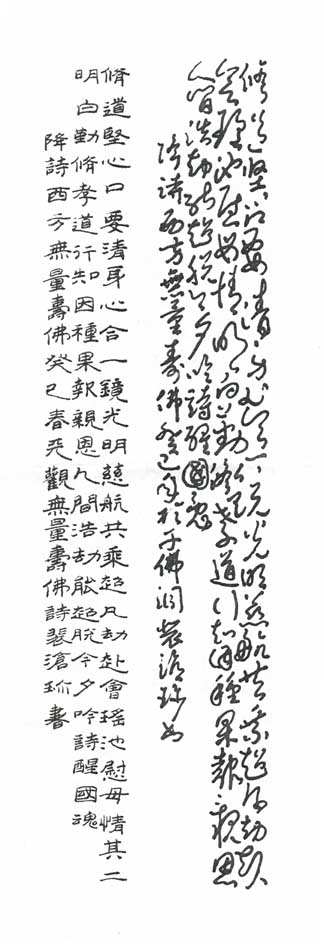 修道堅心口要清身心合一光明慈航共乘超凡劫赴
會瑤池慰母情明白勤修孝道行知因種果報親恩
人間浩劫能超脫今夕吟詩醒國魂
降詩西方無量壽佛癸巳年於千佛洞裴滄珎書
脩道堅心口要清身心合一鏡光明慈航共乘超凡劫赴會瑤池慰母情其二
明白勤脩孝道行知因種果報親恩人間浩劫能超脫今夕吟詩醒國魂
降詩西方無量壽佛癸巳春天觀無量壽佛詩裴滄珎書